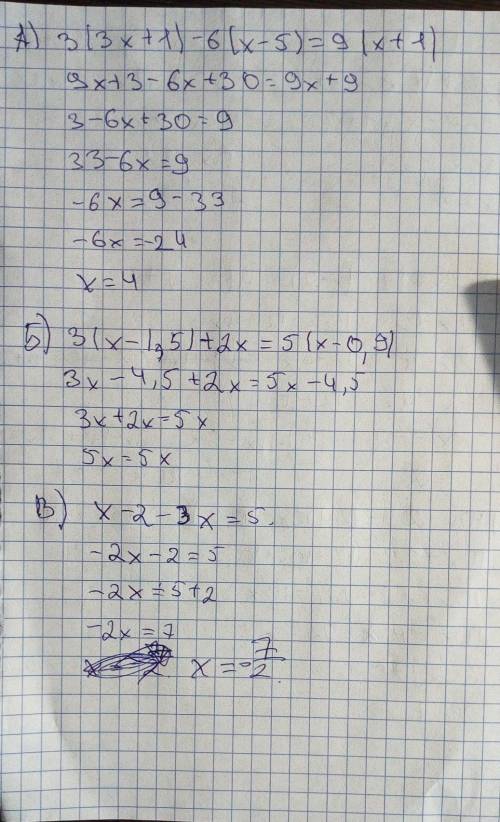 А) 3(3x+1)-6(x-5)=9(x+1)
9x+3-6x+30=9x+9
3-6x+30=9
33-6x=9
-6x=9-33
-6x=-24
x=4
Б) 3(x-1,5)+2x=5(x-0,9)
3x-4,5+2x=5x-4,5
3x+2x=5x
5x=5x
В) x-2-3x=5.
-2x-2=5
-2x=5+2
-2x=7
x=-7/2